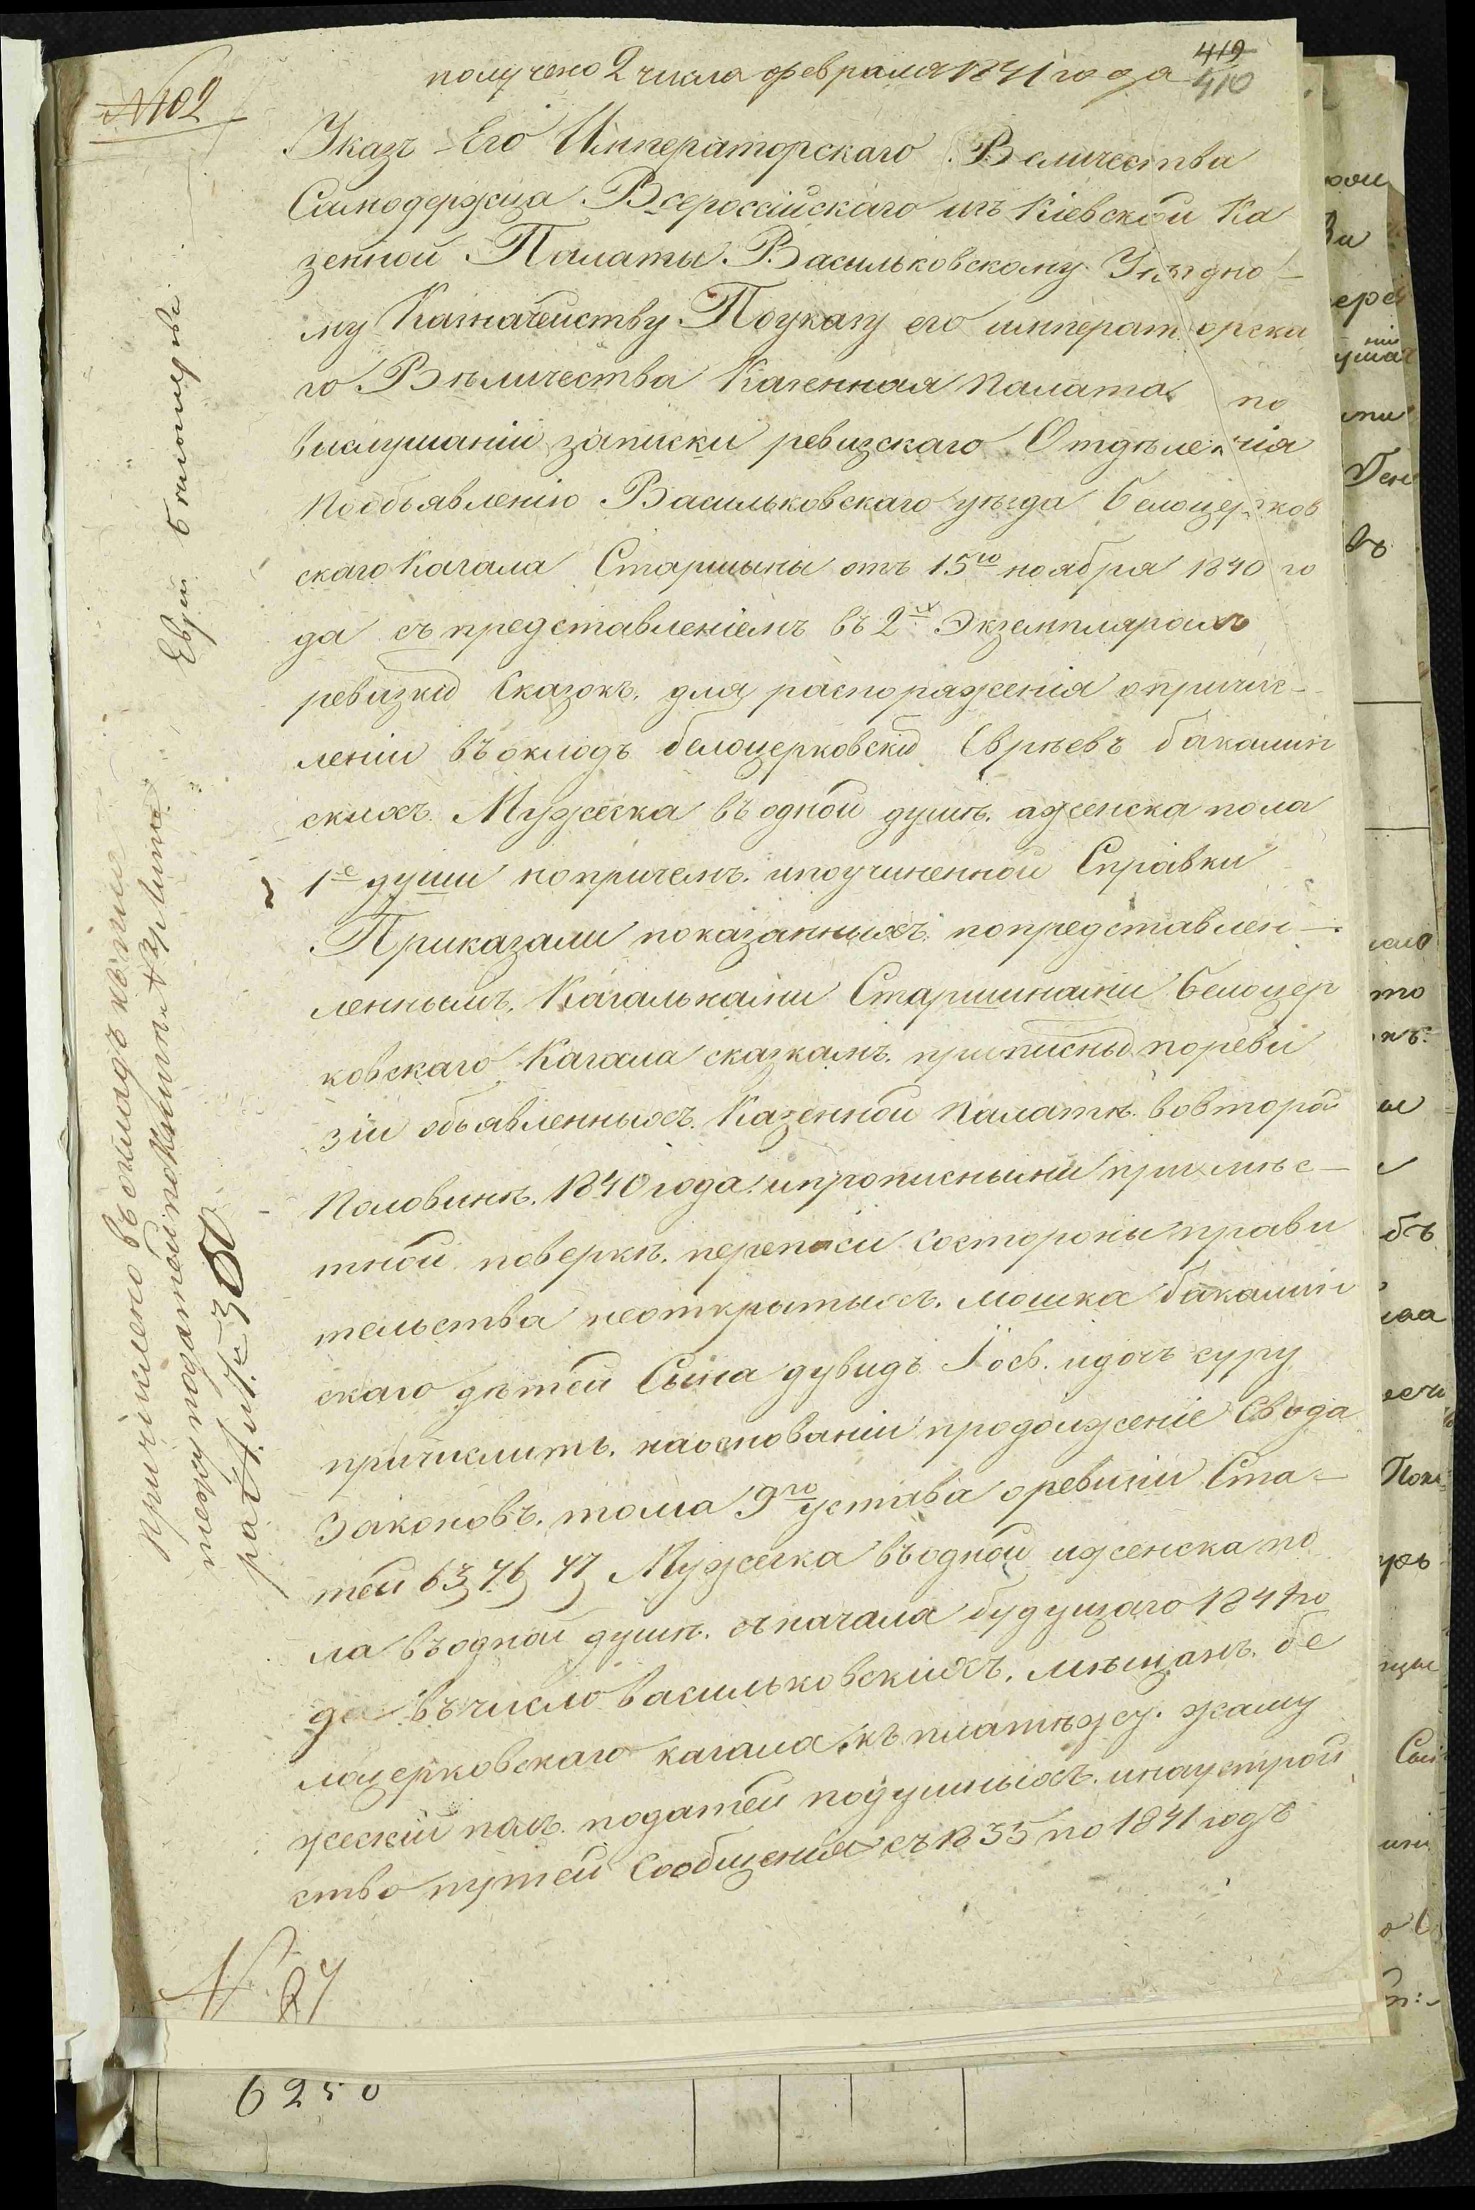 получено 2 числа февраля 1841 года
419
410
№102
Указъ Его Императорскаго Величества
Самодержца Всероссійскаго изъ Кіевской Ка
зенной Палаты Васильковскому Уѣздно-
му Казначейству Поуказу его император орска
го Вѣличества Казенная палата по
выслушаніи записки ревизскаго Отдѣленія
пообъявленію Васильковскаго уѣзда белоцерков
скаго Кагала Старшины отъ 15го ноября 1840 го
да съ представленіемъ въ 2х Экземплярахъ
ревизкихъ Сказокъ. для распоряженія опричис-
леніи въокладъ белоцерковскихъ Еврѣевъ бакалин
скихъ Мужеска въодной душѣ. аженска пола
1е души нопричемъ. ипоучиненной Справки
Приказали показанныхъ попредставлен-
леннымъ. Кагальными Старшинами белоцер
ковскаго Кагала сказкамъ. приписныхъ поревы
зіи объявленныхъ. Казенной палатѣ. вовторой
половинѣ. 1840 года. ипрописными при мѣс-
тной поверкѣ. переписи состороны прави
тельства неоткрытыхъ. мошка бакалин
скаго дѣтей Сына дувидъ Іось. идочь суру
причислить. наоснованіи продолженіе Свода
Законовъ. тома 9го устава оревизіи Ста-
тей 63, 76, 77, Мужеска въодной иженска по
ла въодной душѣ. сначала будущаго 1841 го
да въчисло васильковскихъ. мѣщанъ. бе
лоцерковскаго кагала къплатѣжу.
жескій полъ. податей подушныхъ. инаустрой
ство путей Сообщенія съ 1835 по 1841 годъ
№ 27
Причислено въокладъ
тежу податей покнигѣ
рай. 1. и 1. 30
6250